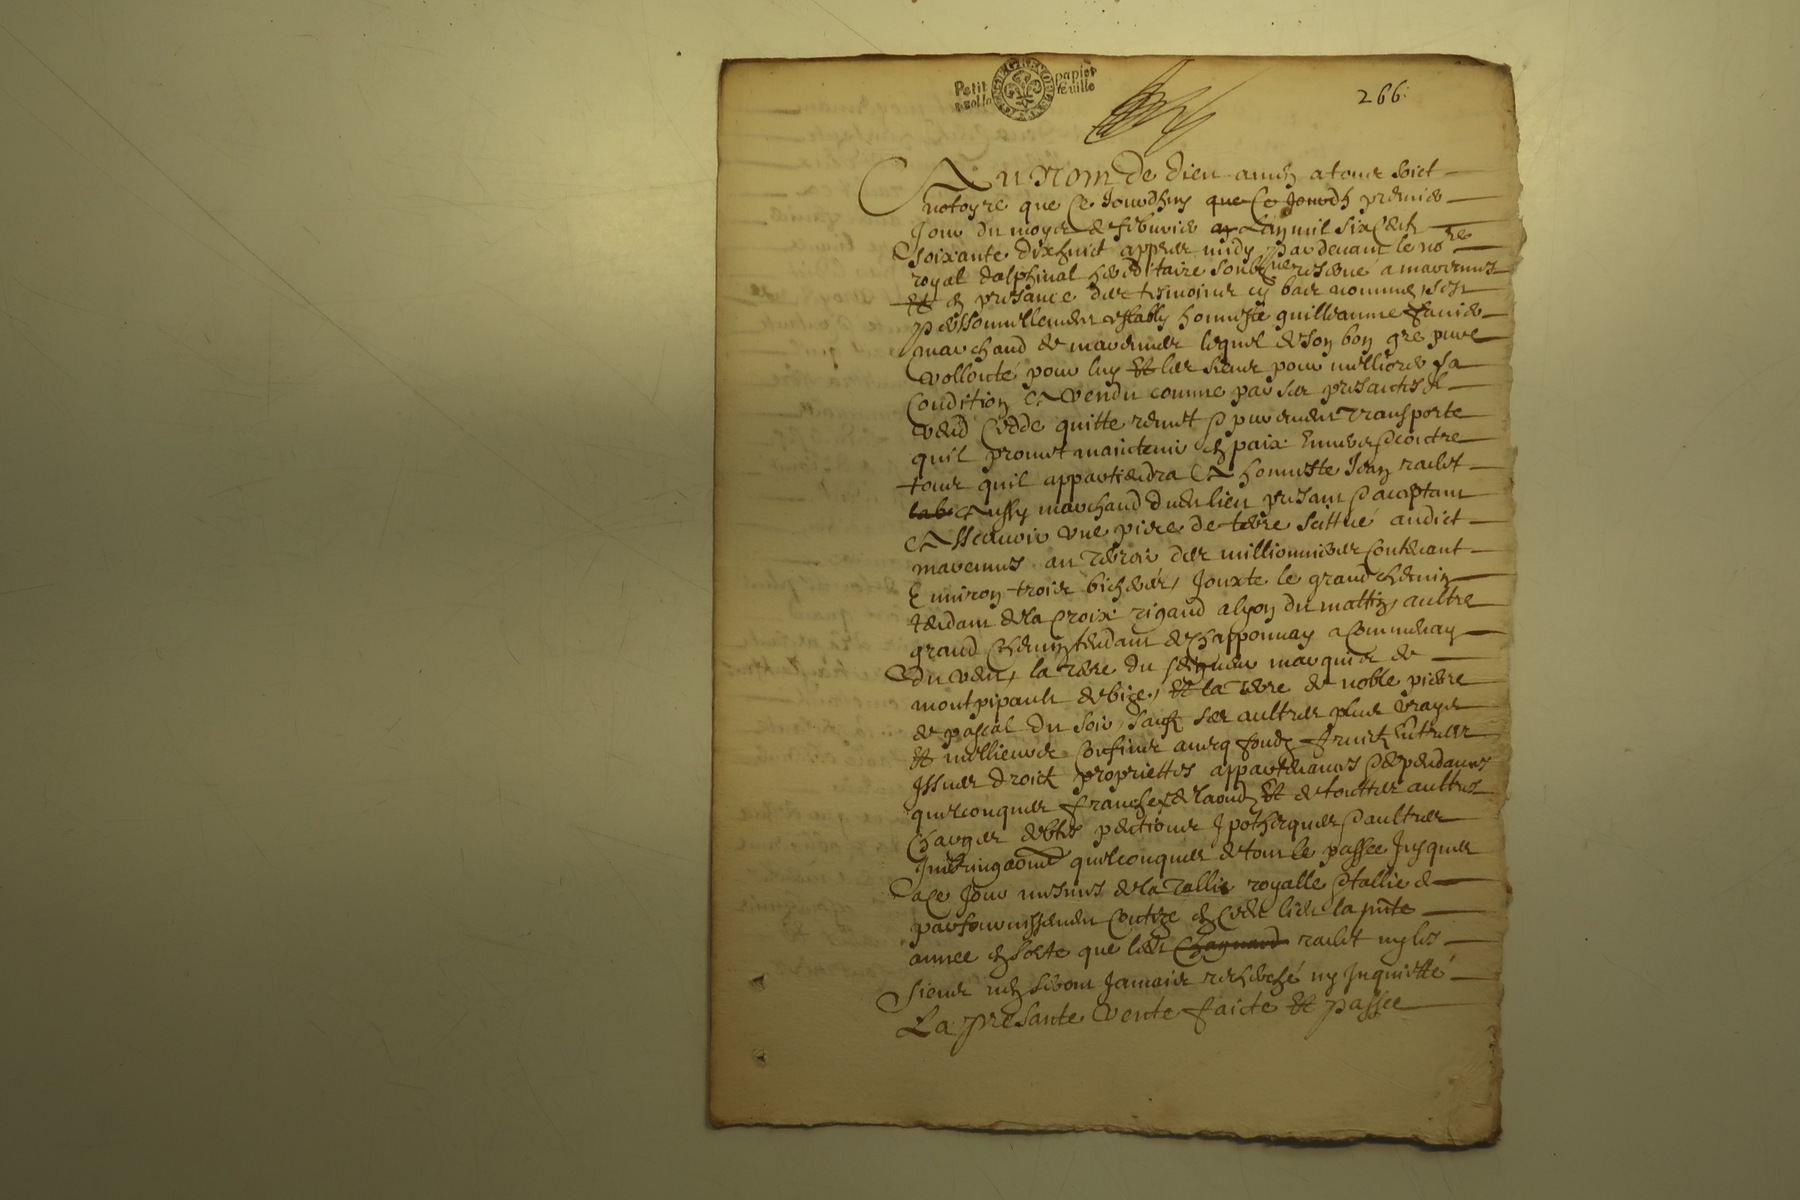 Petit papier
feuille
266
Au Nom de dieu amen a tous soict
notoyre que ce Jourdhuy que ce Jourdh premier
Jour du moys de febvrier an Lan mil six Cent
soixante dixhuict appres midy Pardevant le nore
royal dalphinal hereditaire soubzne resident a marennes
et en presance des tesmoins cy bas nommes sest
Personnellement estably honneste guilleaume
marchand de marennes lequel de son bon gré pure
vollonté pour luy et les siens pour melliorer sa
Condition A vendu comme par ses presantes il
vend Cedde quitte remet & purement Transporte
quil promet maintenir en paix Envers & contre
tous quil appartiendra A honneste Jean rachet
Aussy marchand dud lieu presant & aceptant
Asscauoir vne piece de terre scittué audict
marennes au Terroir des millionnieres Contenant
Environ trois bicherées, Jouxte le grand chemin
tendant de la Croix rigaud a lyon du mattin, aultre
grand chemin tendant de Chapponnay a Communay
du vent, la Terre du seigneur marquis de
montpipault de bize, et la Terre de noble pierre
de pascal du soir, sauf ses aultres plus vrays
et mellieurs Confins avecq fondz fruictz Entrees
Issues droictz proprietes appartenances & dependances
quelconques franche de laoudz et de touttes aultres
Charges debtes pentions Ipotheques & aultres
quelconques de tout le passee Jusques
a ce Jour mesmes de la Tallie royalle & tallie de
parfournissement Contre en cedt lieu la pnte
annee en sorte que ledt Chagnard rachet ny les
siens nen seront Jamais recherché ny Inquietté
La presante vente faicte et passee